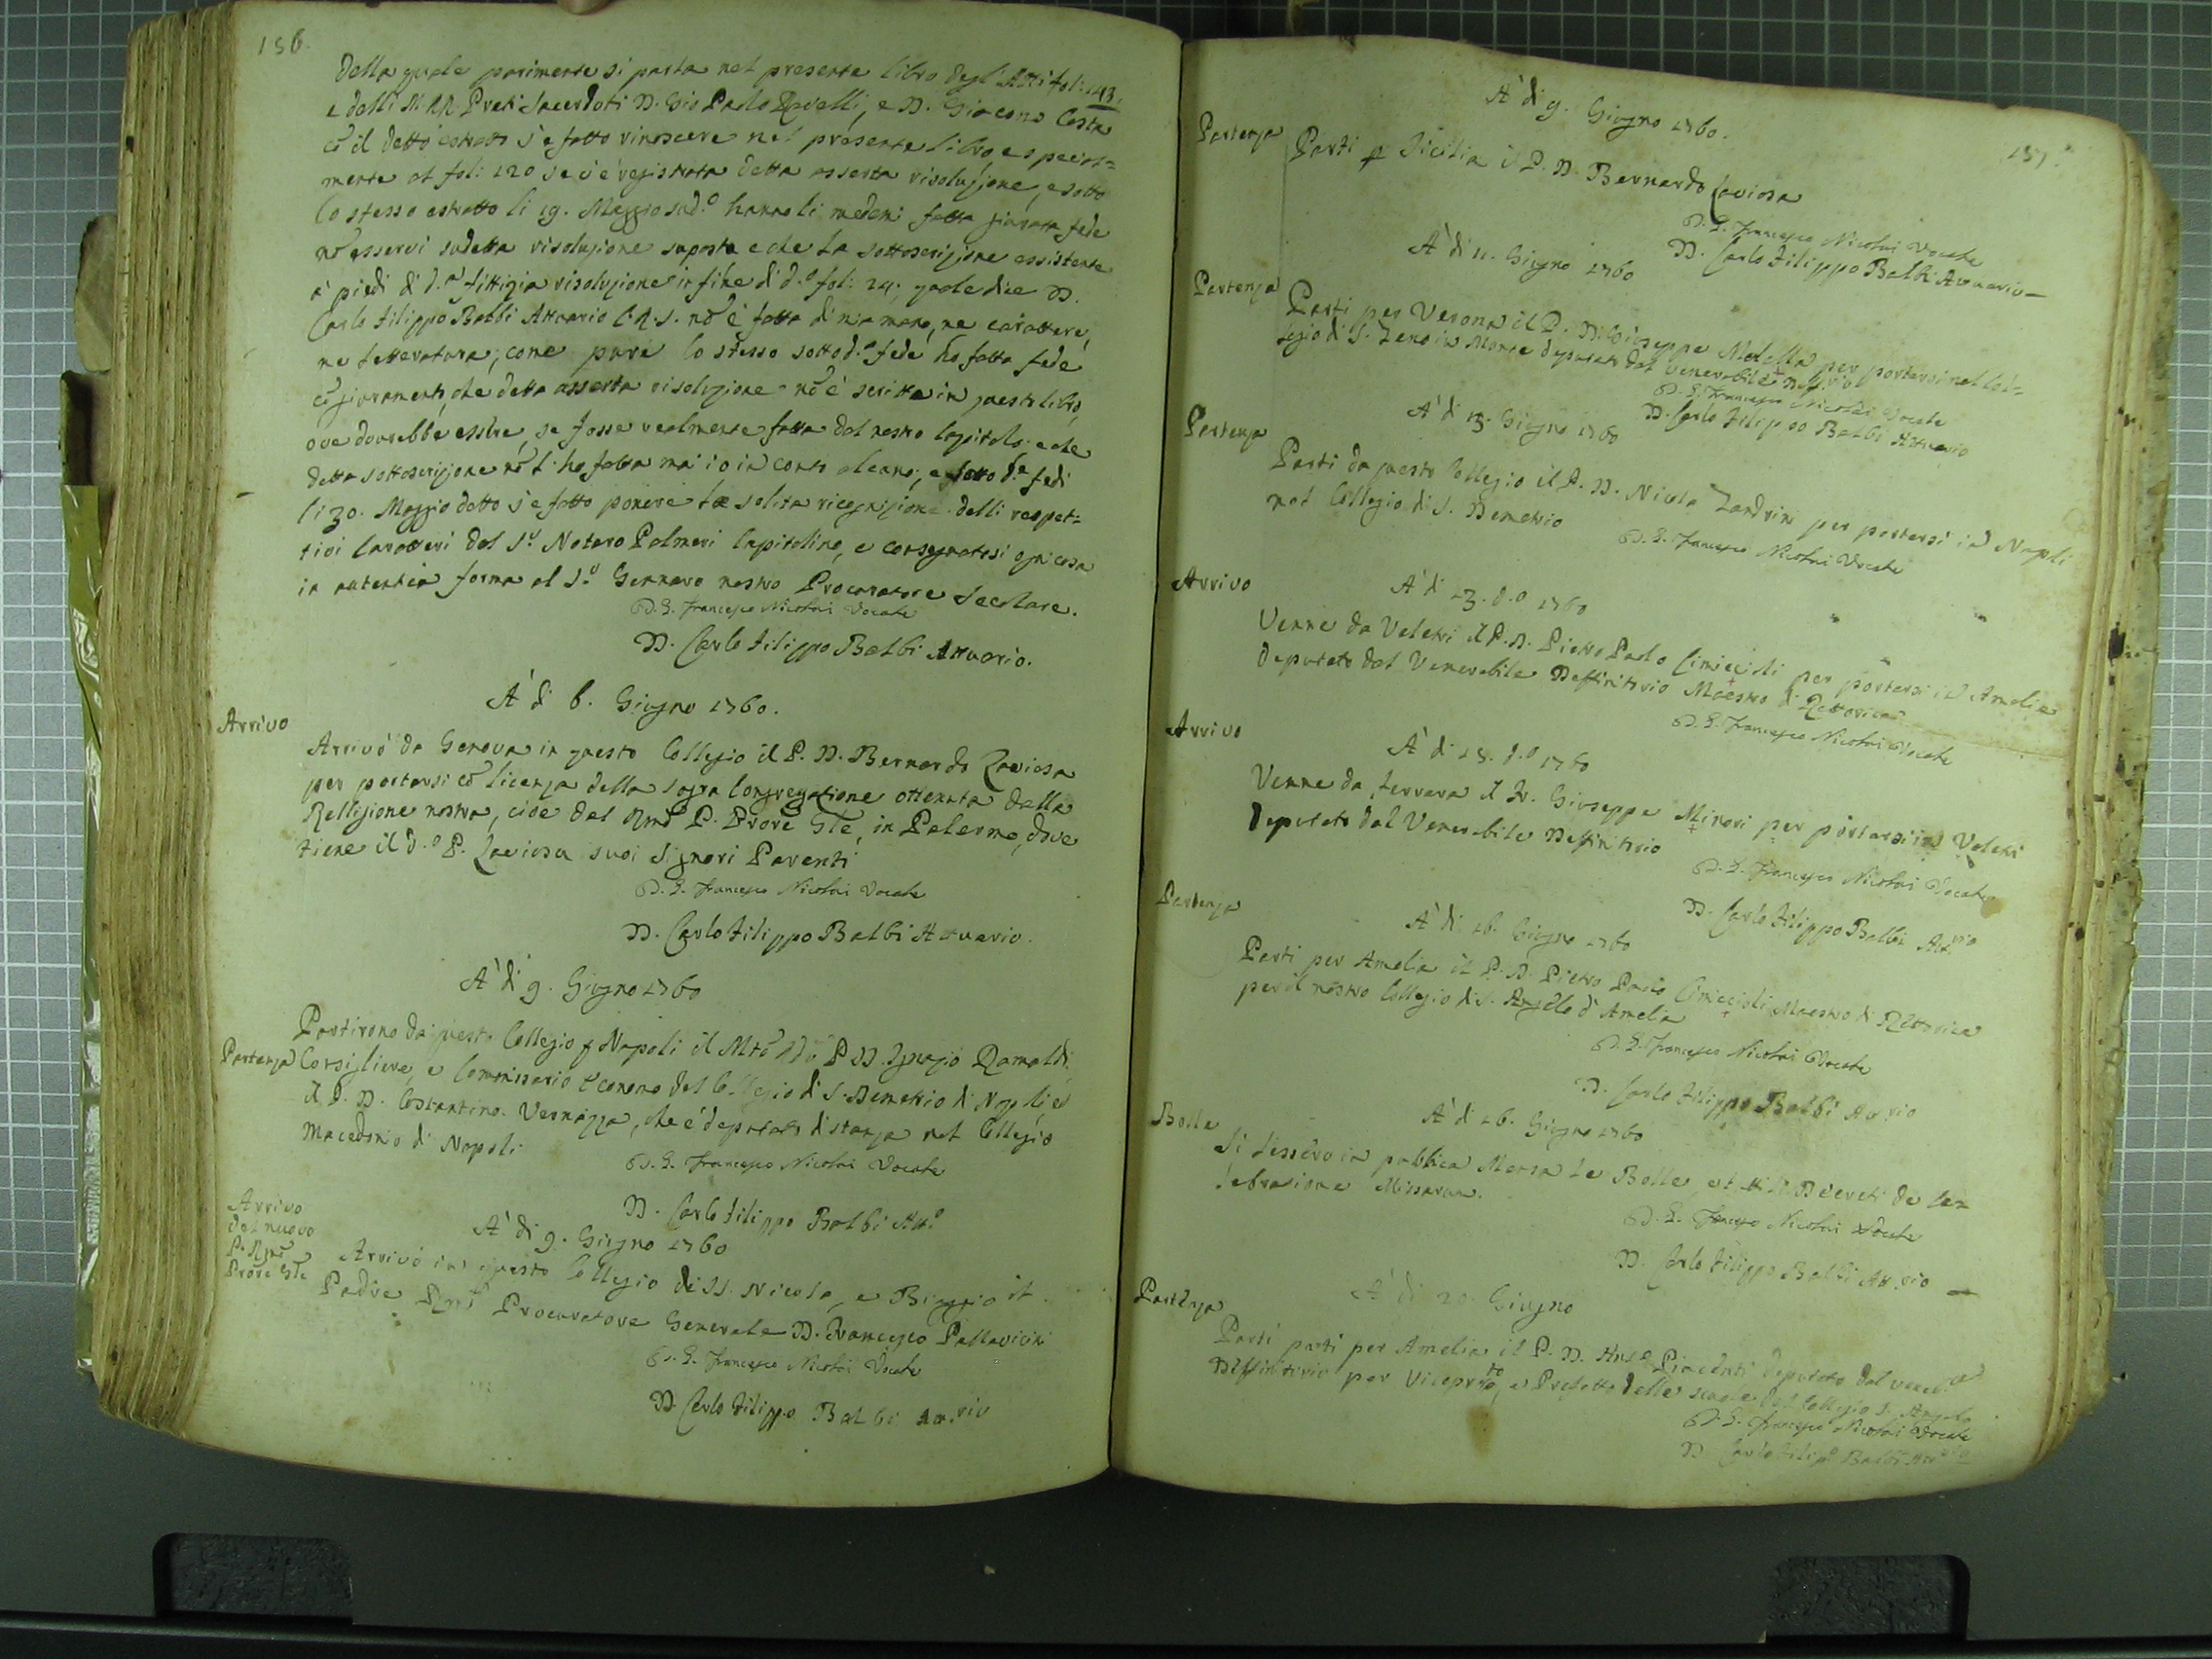 156.
della quale parimente si parla nel presente libro degl'Atti fol: 143.
e dalli M. RR. Preti Sacerdoti D. Gio Paolo Ravelli, e D. Giacomo Costa
cō il detto estratto s'è fatto rinoscere nel presente libro, e special=
mente al fol: 120 se s'è registrata detta asserta risoluzione, e sotto
lo stesso estratto li 19. Maggio sud.o hanno li medemi fatta giurata fede
nō esservi sudetta risoluzione suposta e che la sottoscrizione essistente
à piedi di d.a fittizia risoluzione in fine di d.o fol: 24; quale dice D.
Carlo Filippo Balbi Attuario C.R.S. nō è fatta di mia mano, ne carattere,
ne letteratura; come pure lo stesso sotto d.a fede hò fatta fede
cō giuramento, che detta asserta risoluzione nō è scritta in questo libro,
ove dovrebbe essere, se fosse realmente fatta dal nostro Capitolo, e che
detta sottoscrizione nō l'hò fatta mai io in conto alcuno; e sotto d.e fedi
li 30. Maggio detto s'è fatto ponere la solita ricognizione delli respet=
tivi Caratteri dal S.r Notaro Palmeri Capitolino, e consegnatosi ogni cosa
in autentica forma al S.r Gennaro nostro Procuratore Secolare.
D. G. Francesco Nicolai Vocale
D. Carlo Filippo Balbi Attuario.
A' dì 6. Giugno 1760.
Arrivo
Arrivò da Genova in questo Collegio il P. D. Bernardo Laviosa
per portarsi cō licenza della Sagra Congregazione ottenuta dalla
Relligione nostra, cioè dal Rmō P. Prore Gle, in Palermo, dove
tiene il d.o P. Laviosa suoi Signori Parenti
D. G. Francesco Nicolai Vocale
D. Carlo Filippo Balbi Attuario.
A' dì 9. Giugno 1760
Partirono da questo Collegio p Napoli il Mtō Rdō P D. Ignazio Ramaldi
Partenza Consigliere, e Commissario Economo del Collegio di S. Demetrio di Napoli, ed
il P. D. Costantino Vernazza, che è deputato di stanza nel Collegio
Macedonio di Napoli
D. G. Francesco Nicolai Vocale
D. Carlo Filippo Balbi Att.o
A' dì 9. Giugno 1760
Arrivo
del nuovo
P. Rmō
Prore Gle
Arrivò in questo Collegio de SS. Nicola, e Biaggio il
Padre Rmō Procuratore Generale D. Francesco Pallavicini
D. G. Francesco Nicolai Vocale
D. Carlo Filippo Balbi Att.rio
157.
A' dì 9. Giugno 1760.
Partenza
Partì p Sicilia il P. D. Bernardo Laviosa
D. G. Francesco Nicolai Vocale
D. Carlo Filippo Balbi Attuario
A' dì 11. Giugno 1760
Partenza
Partì per Verona il P. D. Gioseppe Motella per portarsi nel Col=
legio di S. Zeno in Monte deputato dal Venerabile Deff.rio
D. G. Francesco Nicolai Vocale
D. Carlo Filippo Balbi Attuario
A' dì 13. Giugno 1760
Partenza
Partì da questo Collegio il P. D. Nicola Zandrini per portarsi in Napoli
nel Collegio di S. Demetrio
D. G. Francesco Nicolai Vocale
A' dì 13. d.o 1760
Arrivo
Venne da Veletri il P. D. Pietro Paolo Cimiccioli per portarsi in Amelia
deputato dal Venerabile Deffinitorio Maestro di Rettorica
D. G. Francesco Nicolai Vocale
A' dì 15. d.o 1760
Arrivo
Venne da Ferrara il Fr. Gioseppe Minori per portarsi in Veletri
deputato dal Venerabile Deffinitorio
D. G. Francesco Nicolai Vocale
D. Carlo Filippo Balbi Att.rio
A' dì 16. Giugno 1760
Partenza
Partì per Amelia il P. D. Pietro Paolo Cimiccioli Maestro di Rettorica
per il nostro Collegio di S. Angelo d'Amelia
D. G. Francesco Nicolai Vocale
D. Carlo Filippo Balbi Att.rio
A' dì 16. Giugno 1760
Bolle
Si lessero in pubblica Mensa le Bolle, et li Decreti de Ce=
lebratione Missarum.
D. G. Francesco Nicolai Vocale
D. Carlo Filippo Balbi Att.rio
A' dì 20. Giugno
Partenza
Partì partì per Amelia il P. D. Piacenti deputato dal vener.e
Deffinitorio per Viceprto, e Prefetto delle scuole del Collegio S. Angelo
D. G. Francesco Nicolai Vocale
D. Carlo Filipo Balbi Att.rio